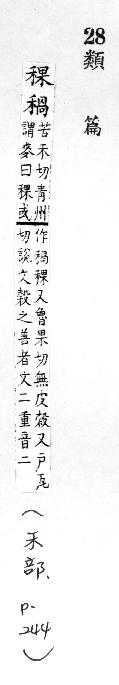 28類
篇
稞稬苦禾切青州
謂麥曰稞或
作稬稞又魯果切無皮穀又戶瓦
切說文穀之善者文二重音二
(禾部、
p.
244)